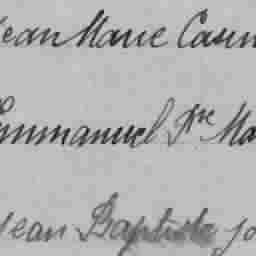 Jean Marie Caun
Emmanuel Fre Ma
Jean Baptiste jo